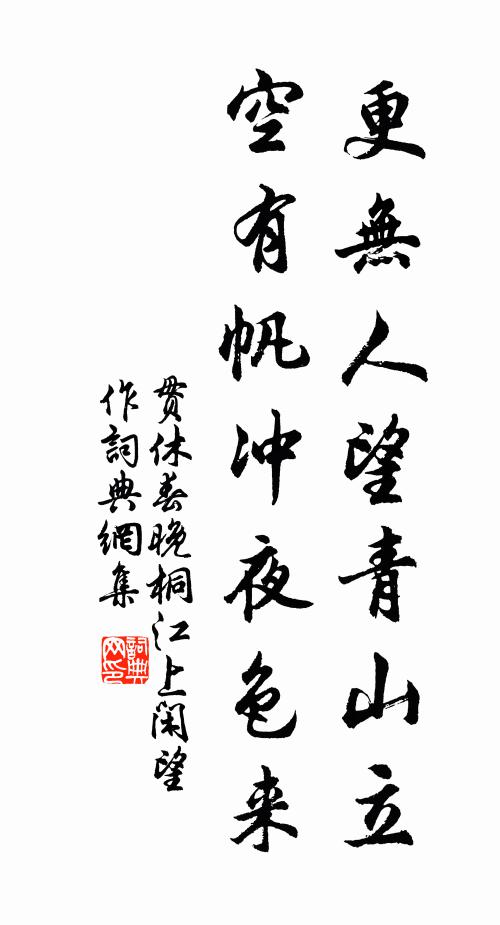 更無人望青山立
空有帆冲夜色来
贯休春晚桐江上閑望
作詞典網集
詞典
网印